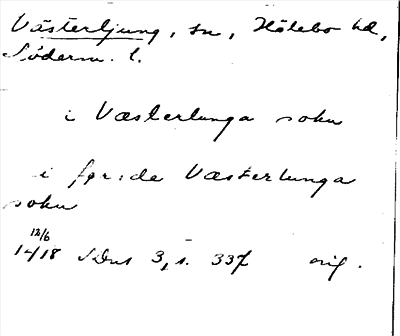 Västerljung, sn, Hölebo hd,
Söderm. l.
i Væsterlunga sokn
i før:de Væsterlunga
sokn
12/6
1418 SDns 3, s. 337 orig.